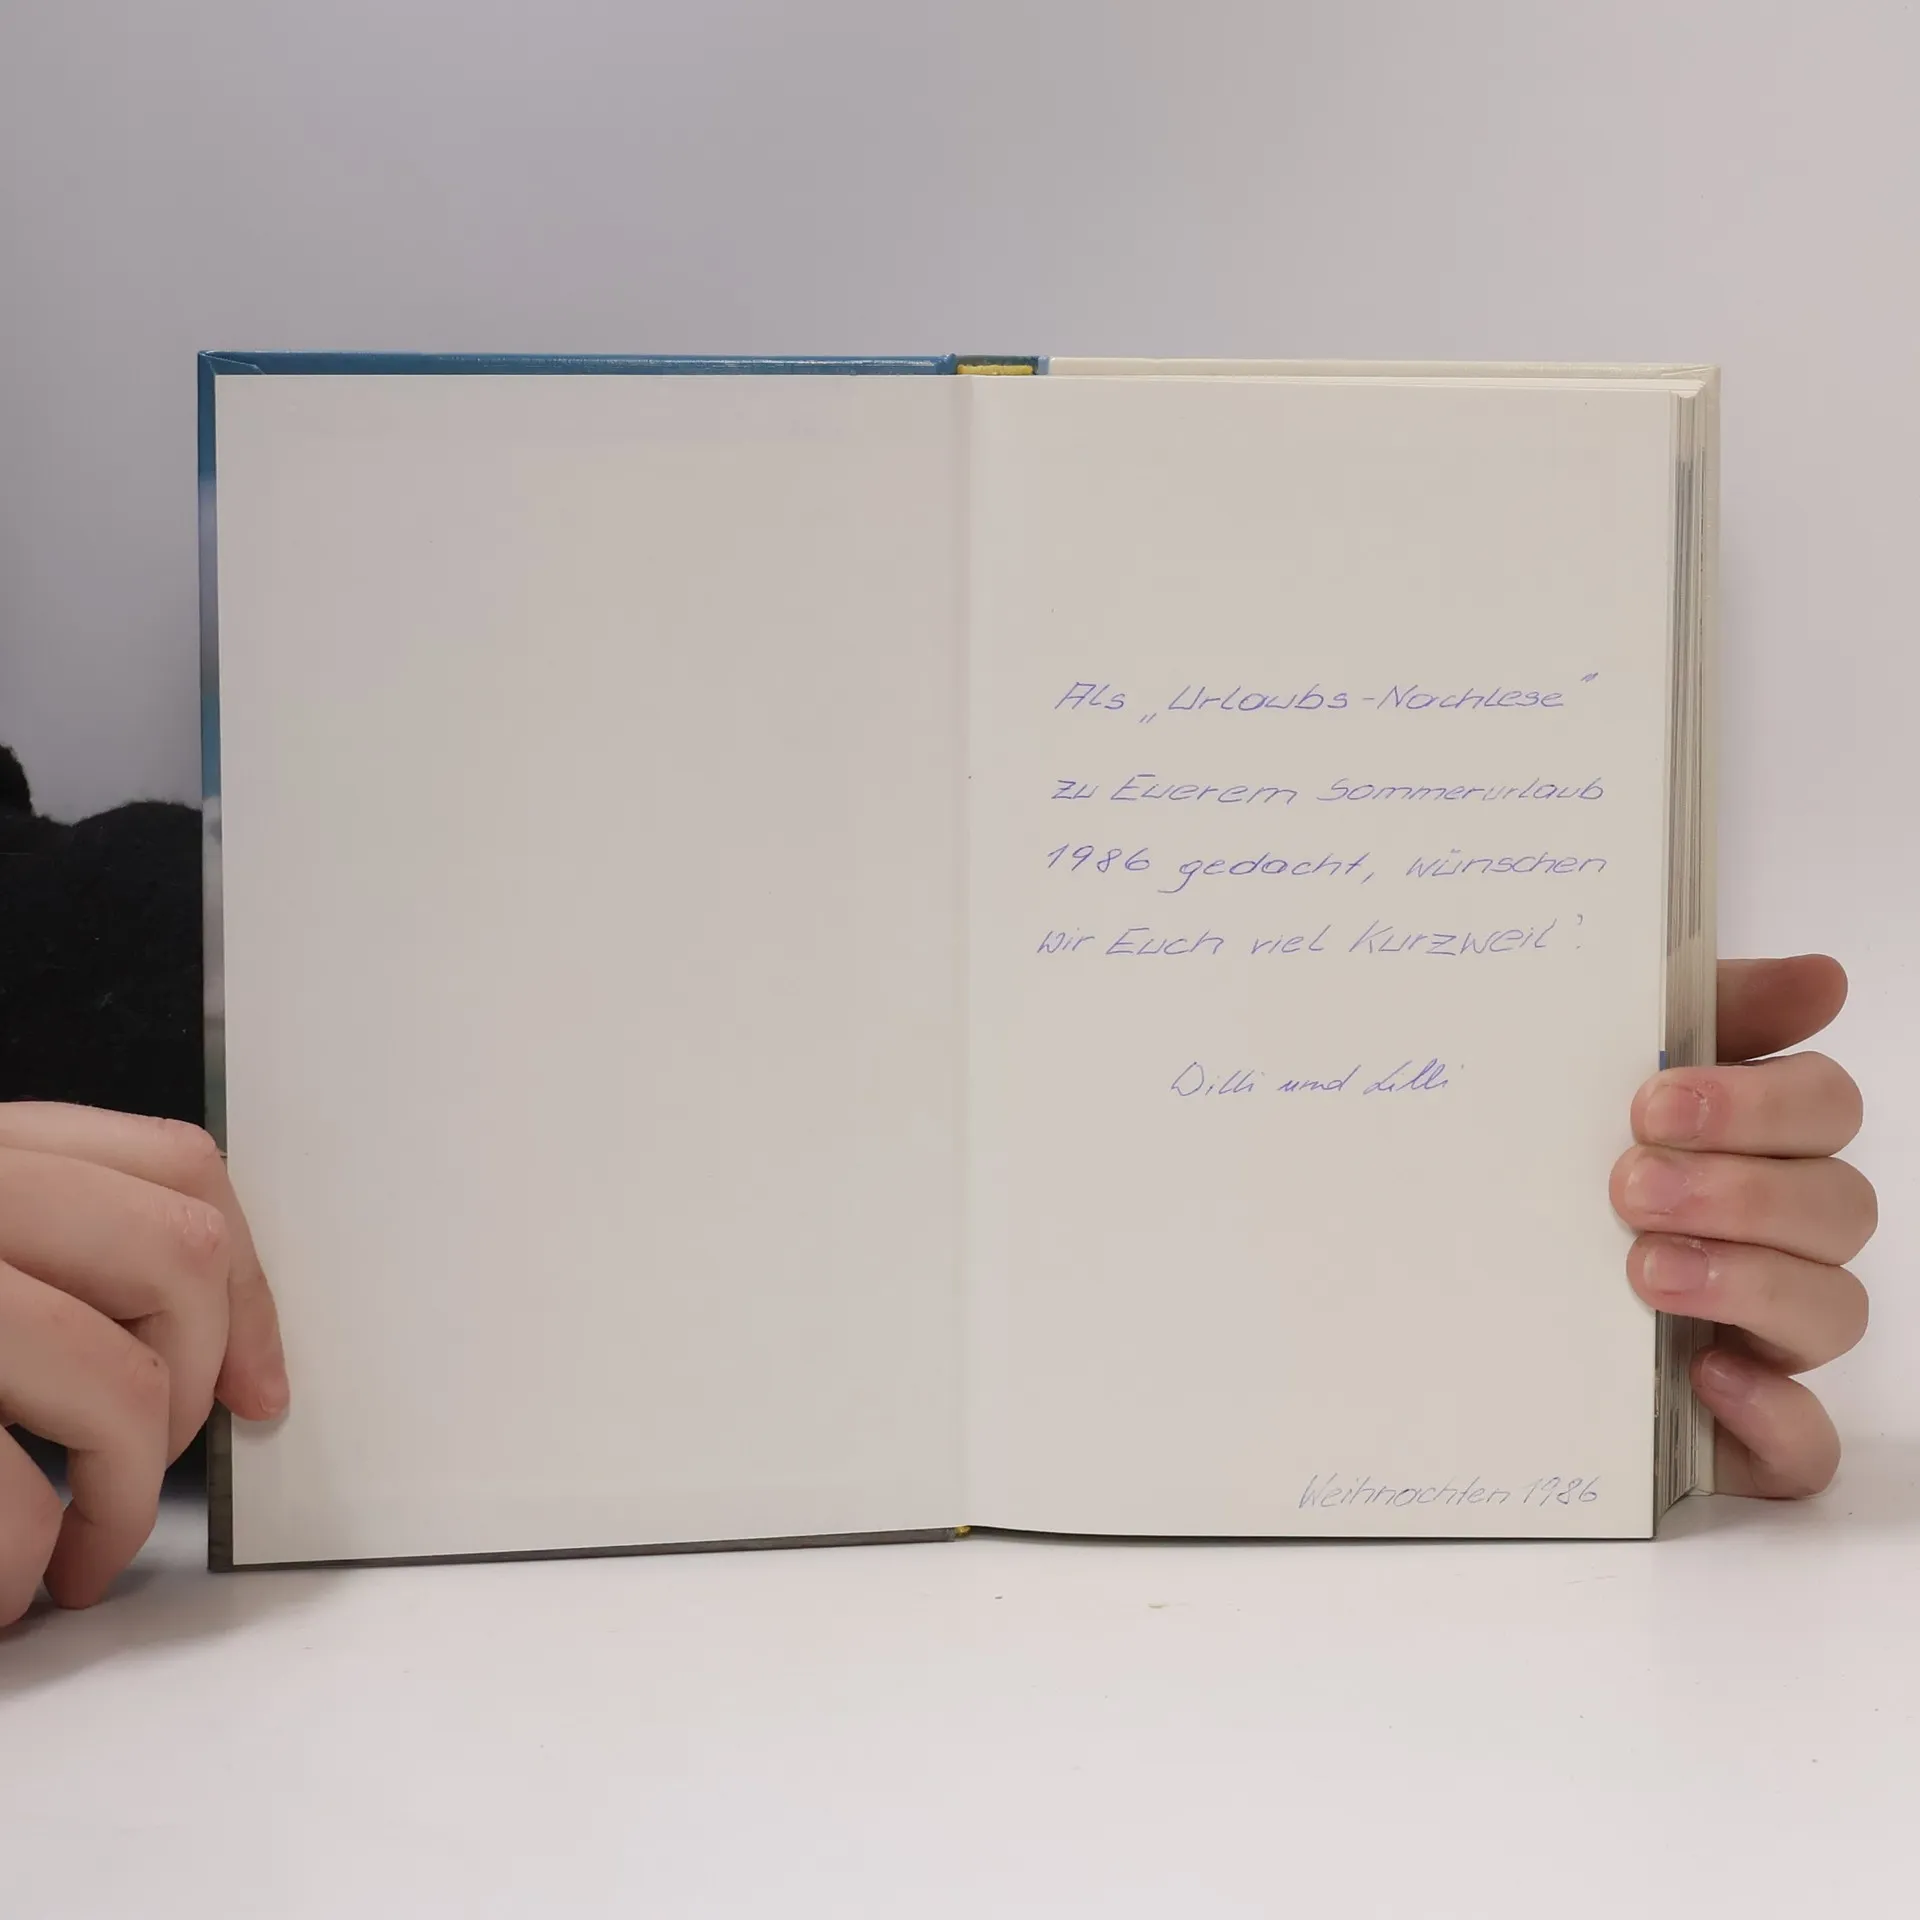 Als „Urlaubs-Nachlese“
zu Euerem Sommerurlaub
1986 gedacht, wünschen
wir Euch viel Kurzweil!
Willi und Lilli
Weihnachten 1986